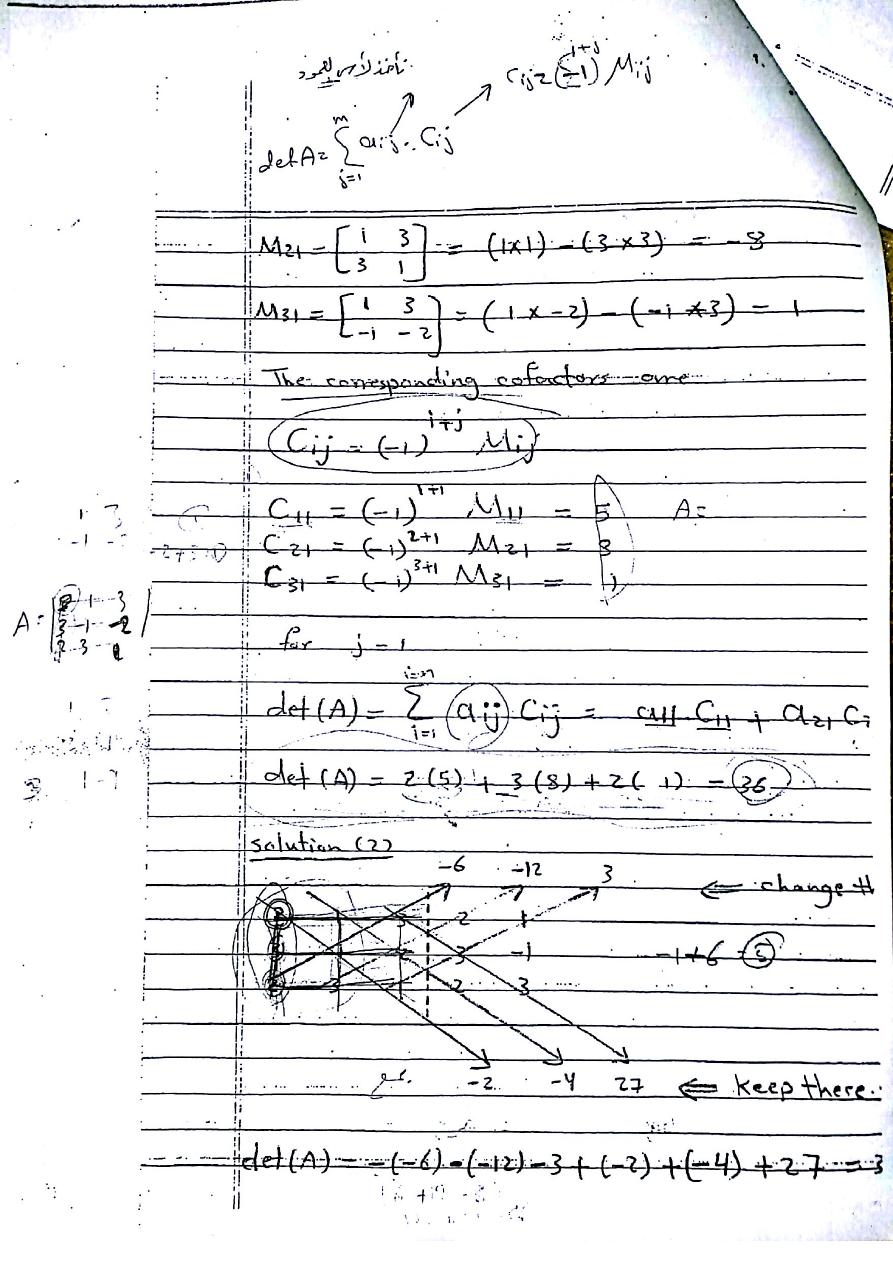 Cij = (-1)^i+j Mij
det A = Σ aij . Cij
m
j=1
M21 = [1 3; 3 1] = (1x1) - (3 x 3) = -8
M31 = [1 3; -1 -2] = (1 x -2) - (-1 x 3) = 1
The corresponding cofactors are
Cij = (-1)^i+j Mij
C11 = (-1)^1+1 M11 = 5 A=
C21 = (-1)^2+1 M21 = 8
C31 = (-1)^3+1 M31 = 1
A = | 2 1 3
3 -1 -2
2 3 1 |
for j = 1
det(A) = Σ i=1 aij Cij = a11 C11 + a21 C
det(A) = 2(5) + 3(8) + 2( 1) = 36
solution (2)
-6 -12 3 ⇐ change
2 1
3 -1 -1+6 = 5
3 2 3
-2 -4 27 ⇐ keep there.
det(A) = -(-6) - (-12) - 3 + (-2) + (-4) + 27 = 3